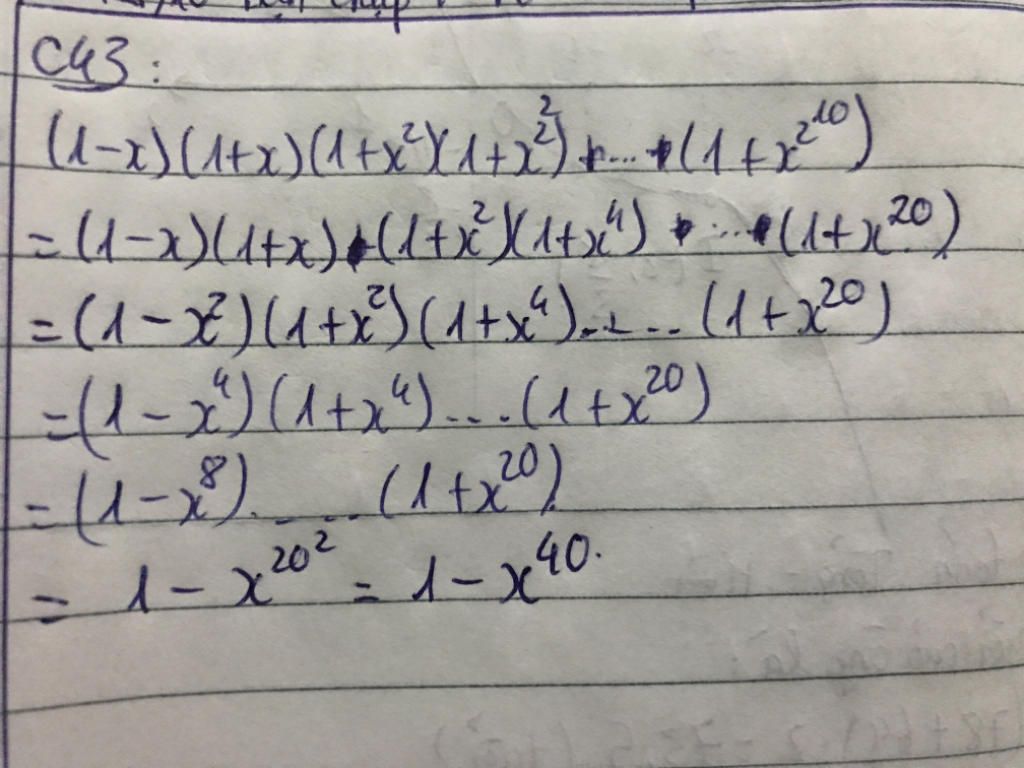 C43:
(1-x)(1+x)(1+x²)(1+x^2^2)....(1+x^2^10)
=(1-x)(1+x).(1+x²)(1+x⁴)....(1+x²⁰)
=(1-x²)(1+x²)(1+x⁴).....(1+x²⁰)
=(1-x⁴)(1+x⁴)....(1+x²⁰)
=(1-x⁸).....(1+x²⁰)
= 1-x^20^2 = 1-x⁴⁰.